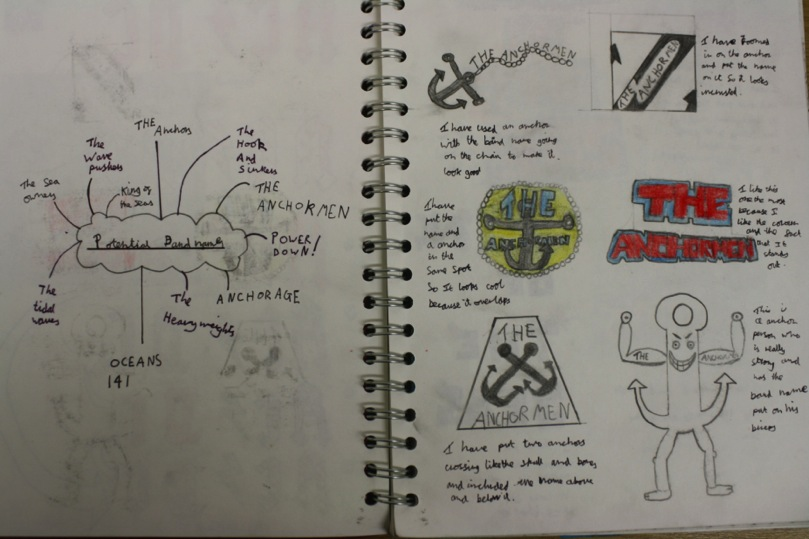 THE
Anchors
The
Wave
pushers
The
Hook
And
Sinkers
The Sea
owners
King of
the seas
THE
ANCHORMEN
Potential Band names
POWER
DOWN!
The
tidal
waves
The
Heavyweights
ANCHORAGE
OCEANS
141
THE ANCHORMEN
I have used an anchor
with the band name going
on the chain to make it
look good
THE ANCHORMEN
I have zoomed
in on the anchor
and put the name
on it so it looks
I have
put the
name and
a anchor
in the
same spot
So It looks cool
because it overlaps
THE
ANCHORMEN
THE
ANCHORMEN
I like this
one the most
because I
like the colours
and the fact
that It
stands
out.
THE
ANCHORMEN
I have put two anchors
crossing like the skull and bones
and included the name above
and below it.
THE
ANCHORMEN
This is
a anchor
person who
is really
strong and
has the
band name
put on his
biceps